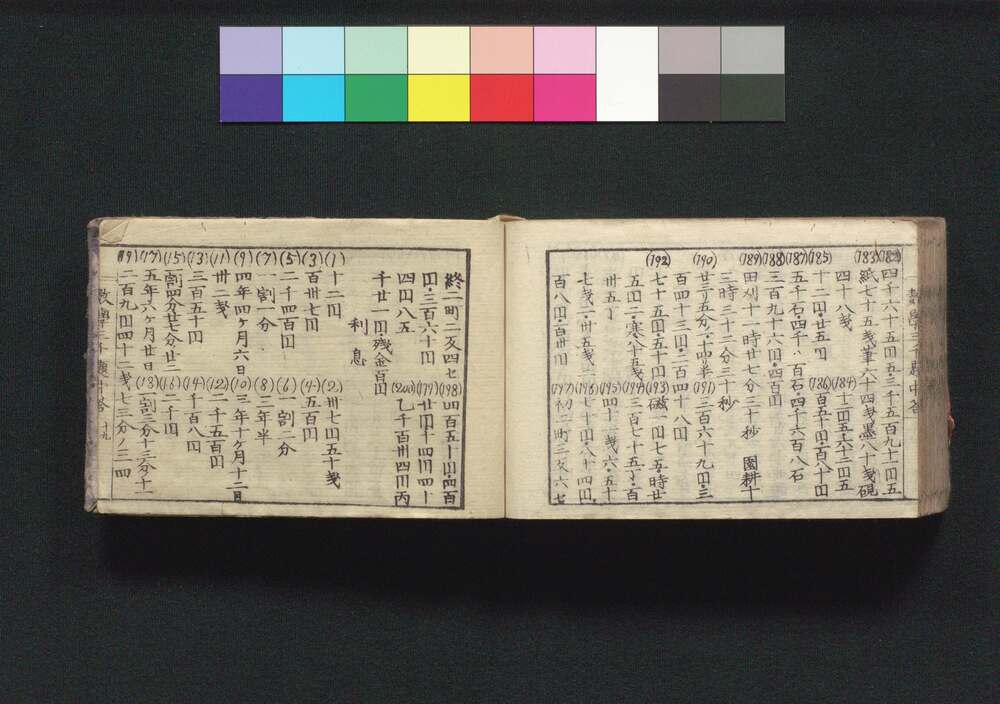 數學三千題中答
(182) 四千六十五円五 三千五百九十一円五
(183) 紙七十五戔筆六十四戔墨八十戔硯
四十八戔 (184) 十二円五 六十二円五
(185) 十二円・廿五円 (186) 百五十円・百八十円
(187) 五千石・四千八百石四千六百八石
(188) 三百九十六円・四百円
(189) 田刈十一時廿七分三十秒 園耕十
三時三十二分三十秒
(190) (191) 三百六十九円・三
百四十三円・二百四十八円
(192) 七十五円五十円 (193) 磁 円七五・時廿
五円二・寒八十五戔 (194) 三百七十五丁・百
卅五丁 (195) 四十一戔六・五十
七戔二・卅五戔 (196) 十円八十四円
百八円・百卅円 (197) 初二町二反六七
終二町二反四七 (198) 四百五十円・四百
円・三百六十円 (199) 廿円十四円四十
四円八五 (200) 乙千百卅四円丙
千廿一円残金百円
利息
(1) 十二円 (2) 卅七円五十戔
(3) 百卅七円 (4) 五百円
(5) 二千四百円 (6) 一割二分
(7) 一割一分 (8) 三年半
(9) 四年四ヶ月六日 (10) 三年十ヶ月十二日
(11) 卅二戔 (12) 二千五百円
(13) 三百五十円 (14) 千百八円
(15) 一割四分廿七分廿三 (16) 二千円
(17) 五年六ヶ月廿日 (18) 一割三分十三分十一
(19) 二百九円四十二戔七三分ノ二四
數學三千題中答 十九